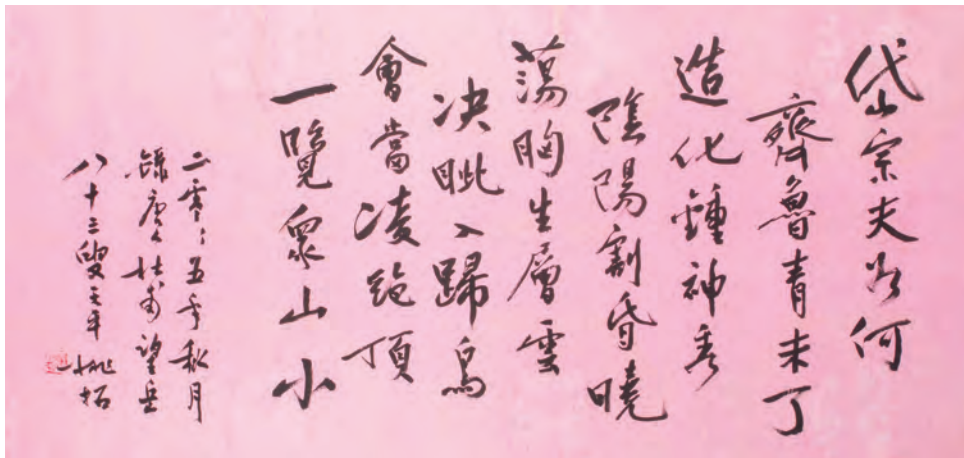 岱宗夫如何
齊魯青未了
造化鍾神秀
陰陽割昏曉
蕩胸生層雲
决眦入歸鳥
會當凌絕頂
一覽眾山小
二零零五年秋月
錄唐人杜甫望岳
八十三叟 姚拓